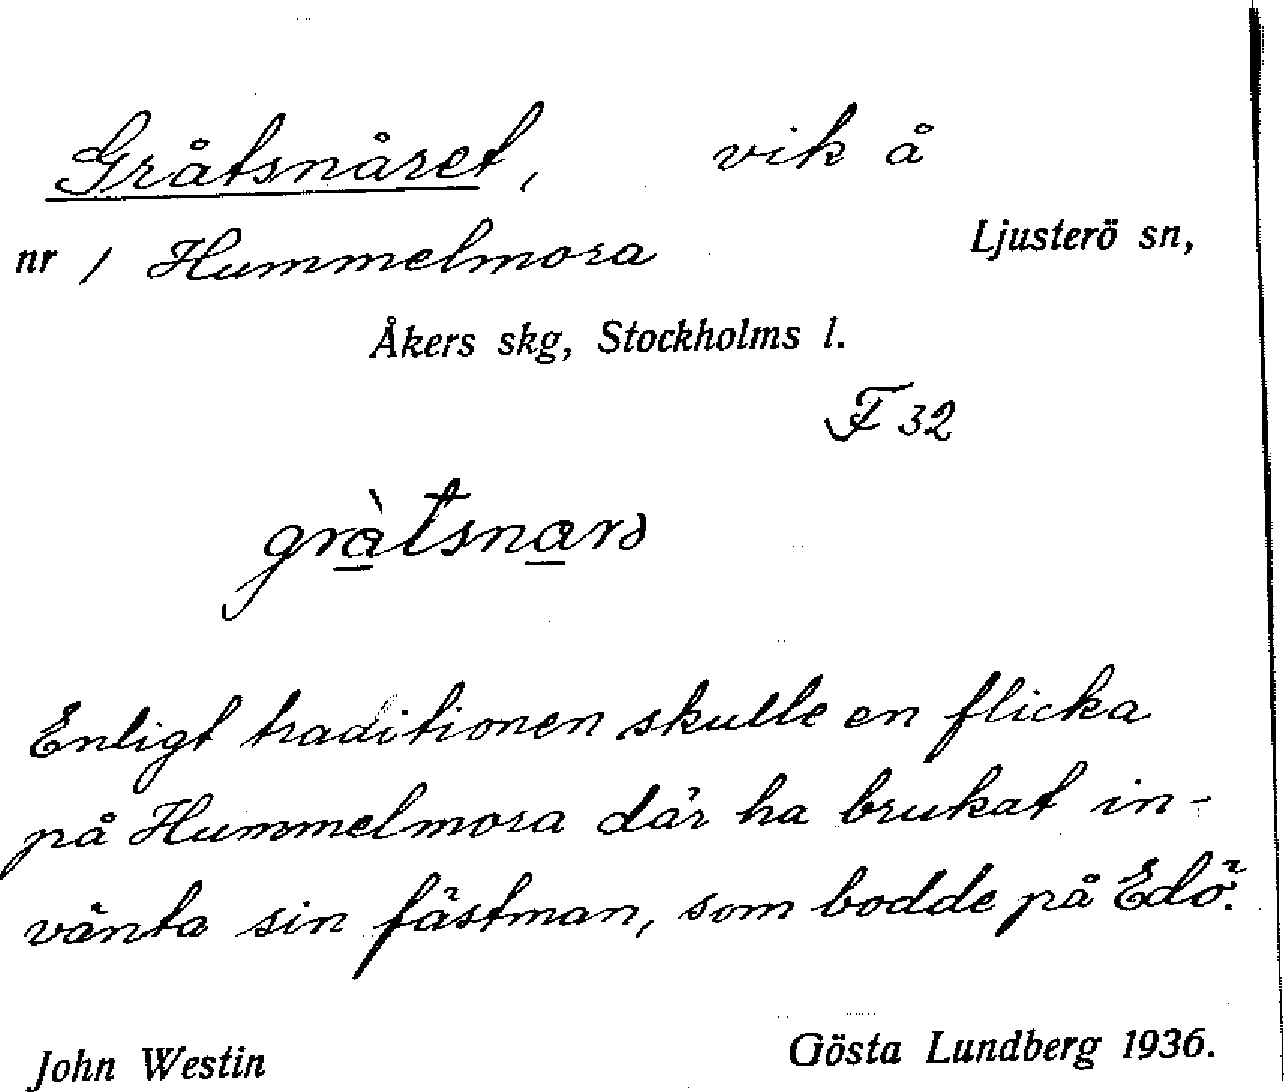 Gråtsnåret, vik å
nr 1 Hummelmora Ljusterö sn,
Åkers skg, Stockholms l.
F 32
grà̱tsna̱rə
Enligt traditionen skulle en flicka
på Hummelmora där ha brukat in-
vänta sin fästman, som bodde på Edö.
John Westin Gösta Lundberg 1936.